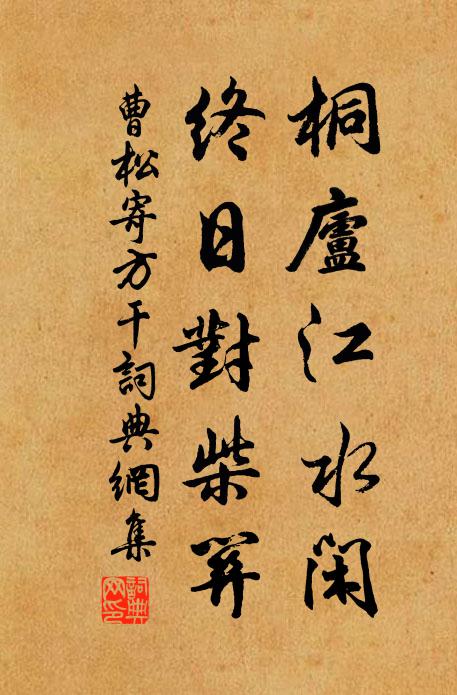 桐廬江水閑
終日對柴關
曹松寄方干詞典網集
詞典網印